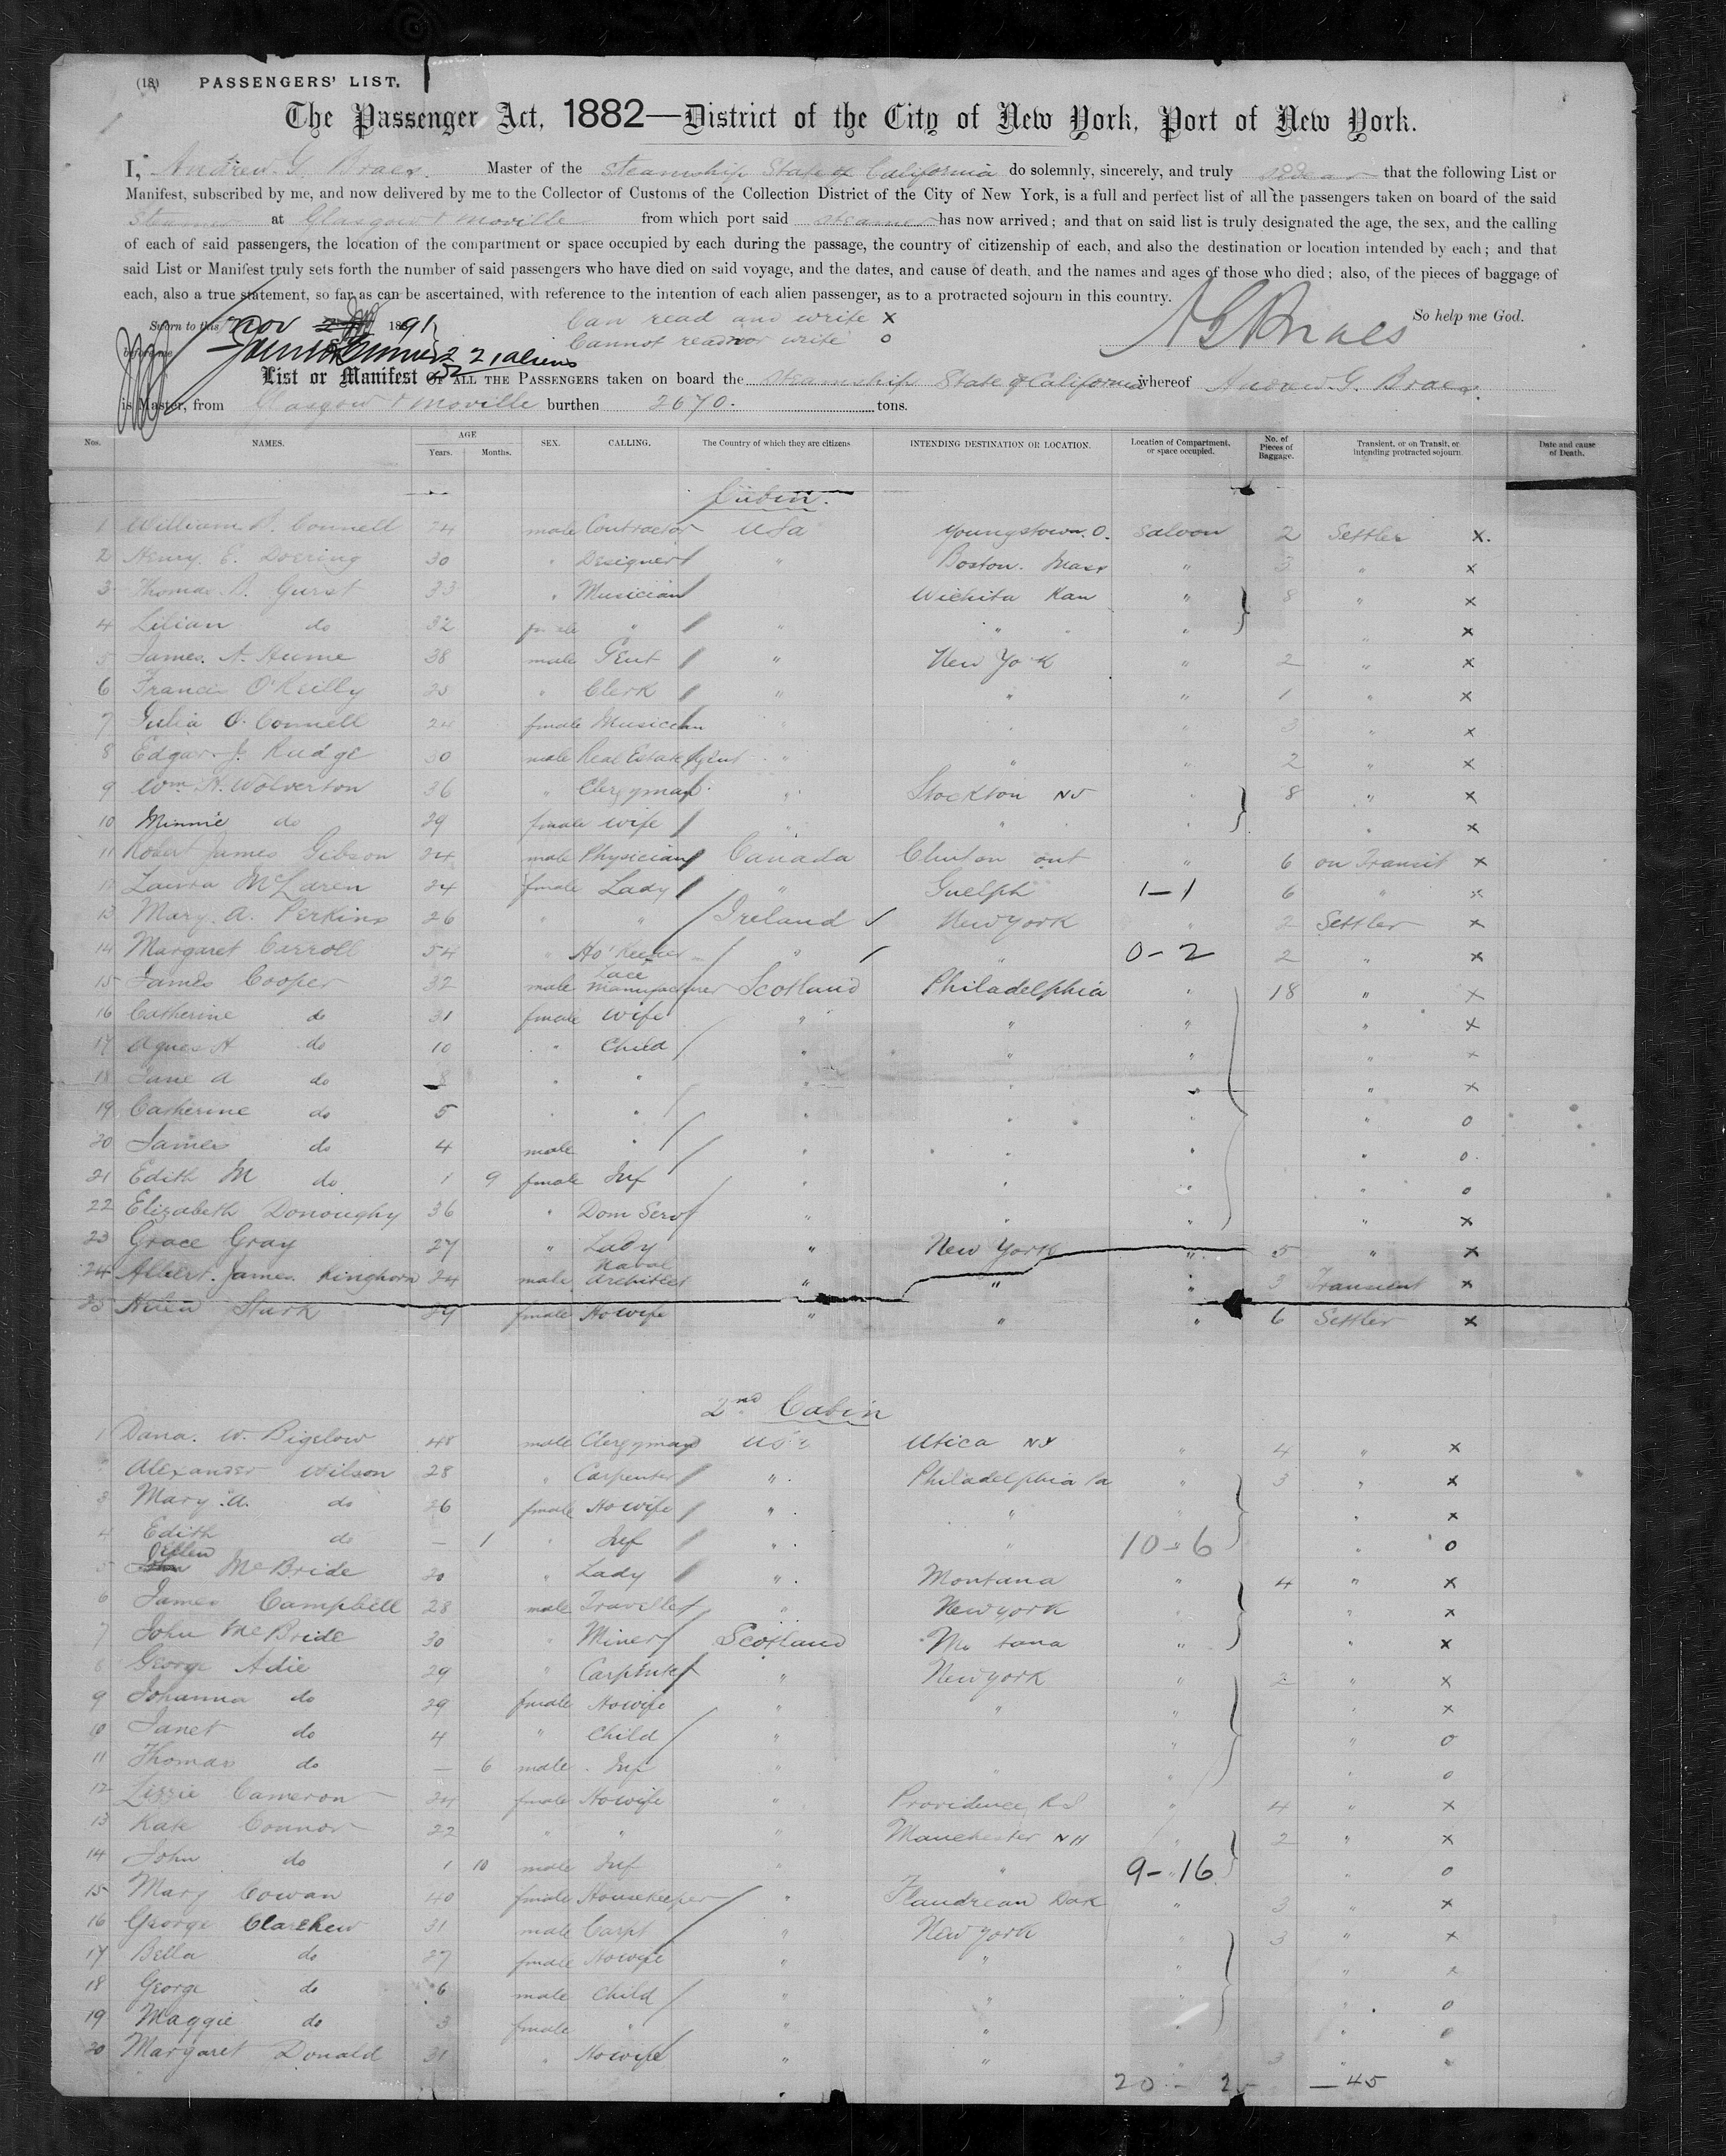 (18) PASSENGERS' LIST.
The Passenger Act, 1882—District of the City of New York, Port of New York.
I, Andrew G. Braes. Master of the Steamship State of California do solemnly, sincerely, and truly swear that the following List or
Manifest, subscribed by me, and now delivered by me to the Collector of Customs of the Collection District of the City of New York, is a full and perfect list of all the passengers taken on board of the said
Steamer at Glasgow & Moville from which port said steamer has now arrived; and that on said list is truly designated the age, the sex, and the calling
of each of said passengers, the location of the compartment or space occupied by each during the passage, the country of citizenship of each, and also the destination or location intended by each; and that
said List or Manifest truly sets forth the number of said passengers who have died on said voyage, and the dates, and cause of death, and the names and ages of those who died; also, of the pieces of baggage of
each, also a true statement, so far as can be ascertained, with reference to the intention of each alien passenger, as to a protracted sojourn in this country.
So help me God.
Sworn to this Nov 1891
Can read and write x
Cannot read nor write o
AGBraes
before me
221 aliens
List or Manifest OF ALL THE PASSENGERS taken on board the Steamship State of California whereof Andrew G. Braes.
is Master, from Glasgow & Moville burthen 2670. tons.
Nos. NAMES. AGE Years. Months. SEX. CALLING. The Country of which they are citizens INTENDING DESTINATION OR LOCATION. Location of Compartment, or space occupied. No. of Pieces of Baggage. Transient, or on Transit, or intending protracted sojourn Date and cause of Death.
Cabin.
1 William Connell 24 male Contractor USa Youngstown. O. Saloon 2 Settler x.
2 Henry. E. Doering 30 " Designer " Boston. Mass " 3 " x
3 Thomas Gurst 33 " Musician Wichita Kan " 8 " x
4 Lilian do 32 female " " " " " x
5 James. A. Hume 38 male Gent " New York " 2 " x
6 Francis O'Reilly 25 " Clerk " " " 1 " x
7 Julia O. Connell 24 female Musician " " " 3 " x
8 Edgar. J. Rudge 30 male Real Estate Agent " " " 2 " x
9 Wm. H. Wolverton 36 " Clergyman " Stockton NJ " 8 " x
10 Minnie do 29 female wife " " " " x
11 Robert James Gibson 24 male Physician Canada Clinton ont " 6 on Transit x
12 Laura McLaren 24 female Lady " Guelph 1-1 6 " x
13 Mary. A. Perkins 26 " " Ireland New York " 2 Settler x
14 Margaret Carroll 54 " Ho' Keeper " " 0-2 2 " x
15 James Cooper 32 male Lace Manufacturer Scotland Philadelphia " 18 " x
16 Catherine do 31 female Wife " " " " x
17 Agnes H do 10 " Child " " " " x
18 Jane A do 8 " " " " " " x
19 Catherine do 5 " " " " " " o
20 James do 4 male " " " " " o
21 Edith M do 1 9 female Inf " " " " o
22 Elizabeth Donoughy 36 " Dom Serv " " " " x
23 Grace Gray 27 " Lady " New York " 5 " x
24 Albert. James. Kinghorn 24 male Naval Architect " " " 3 Transient x
25 Helen Stark 29 female Howife " " " 6 Settler x
2nd Cabin
1 Dana. W. Bigelow 48 male Clergyman USa Utica NY " 4 " x
Alexander Wilson 28 " Carpenter " Philadelphia Pa " 3 " x
3 Mary. A. do 26 female Howife " " " " x
4 Edith do — 1 " Inf " " 10-6 " o
5 Ellen McBride 20 " Lady " Montana " 4 " x
6 James Campbell 28 male Traveller " New York " " x
7 John McBride 30 " Miner Scotland Montana " " x
8 George Adie 29 " Carpenter " New York " 2 " x
9 Johanna do 29 female Howife " " " " x
10 Janet do 4 " Child " " " o
11 Thomas do — 6 male Inf " " " " o
12 Lizzie Cameron 24 female Howife " Providence, R I " 4 " x
13 Kate Connor 22 " " " Manchester NH " 2 " x
14 John do 1 10 male Inf " 9-16 " o
15 Mary Cowan 40 female Housekeeper " Flandreau Dak " 3 " x
16 George Clarehew 31 male Carpt " New York " 3 " x
17 Bella do 27 female Howife " " " " x
18 George do 6 male Child " " " " o
19 Maggie do 3 female " " " " " o
20 Margaret Donald 31 " Howife " " " 3 "
20 - 2 — 45